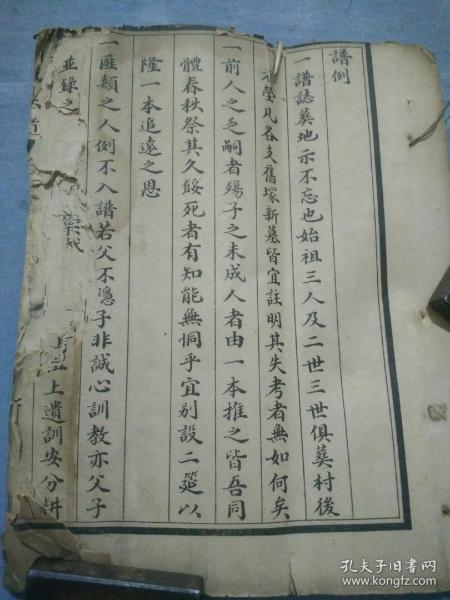 譜例
一譜誌葬地示不忘也始祖三人及二世三世俱葬村後
塋凡各支舊塚新墓皆宜註明其失考者無如何矣
一前人之乏嗣者殤子之未成人者由一本推之皆吾同
體春秋祭其久餒死者有知能無恫乎宜别設二筵以
隆一本追遠之恩
一匪類之人例不入譜若父不隱子非誠心訓教亦父子
並錄之
上遺訓安分耕
孔夫子旧书网
www.kongfz.com